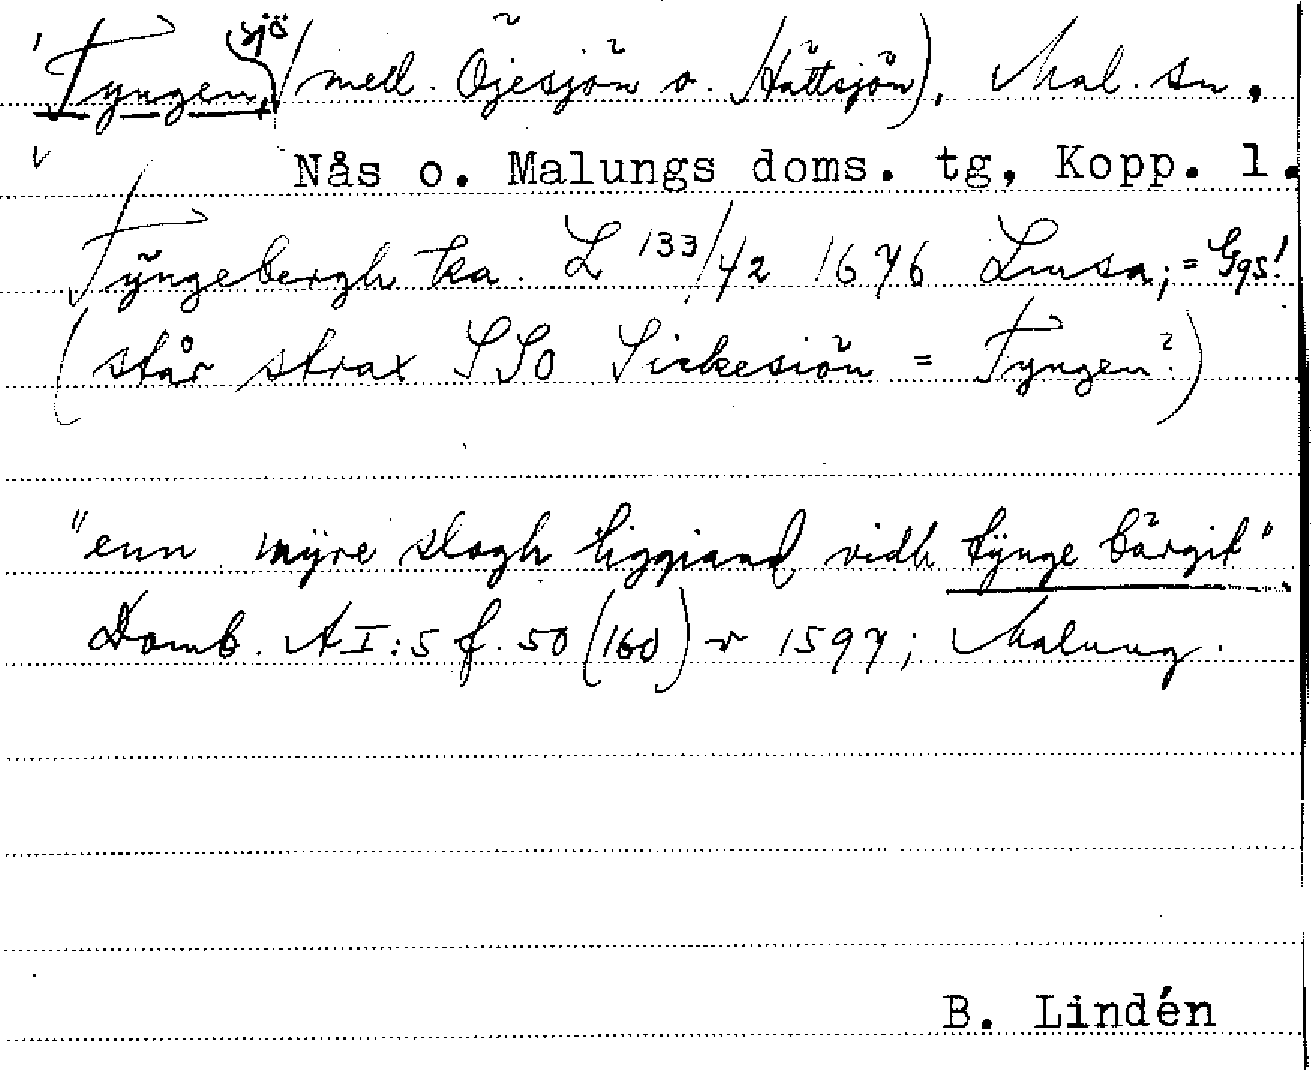 Tyngen, sjö (mell. Öjesjön o. Hättsjön), Mal. sn.
Nås o. Malungs doms. tg, Kopp. l.
Tÿngebergh ka. L 133/42 1676 Limsa; = Ggs!
(står strax SSO Sickesiön = Tyngen?)
"enn mÿre slogh liggiand vidh tÿnge bärgit"
Domb. AI:5 f. 50 (160) v 1597; Malung.
B. Lindén